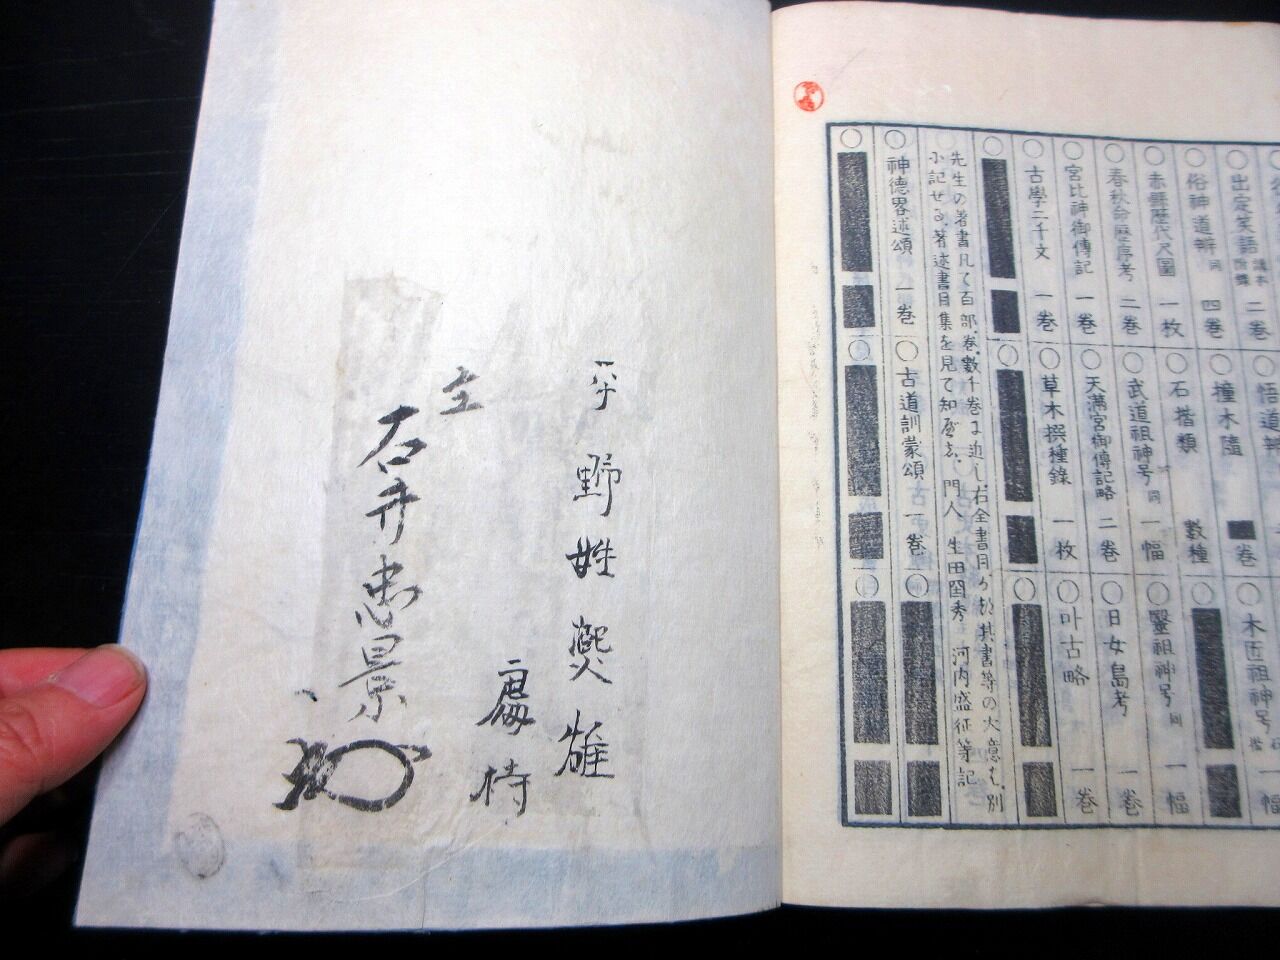 出定笑語 講本 附録 二巻
悟道辨
木匠祖神号
俗神道辨 同 四巻
撞木隨 巻
赤縣歴代尺圖 一枚
石楷類 數種
醫祖神号 同 一幅
春秋命歴序考 二巻
武道祖神号 同 一幅
日女島考 一巻
宮比神御傳記 一巻
天滿宮御傳記略 二巻
古略 一巻
古學二千文 一巻
草木撰種錄 一枚
先生の著書凡て百部、巻數千巻に近し、右全書目及其書等の大意は、別
小記せる、著述書目集を見て知べし、門人 生田国秀 河内盛征等記
神德畧述頌 一巻
古道訓蒙頌 一巻
平野姓 雄
持
主
石井忠景